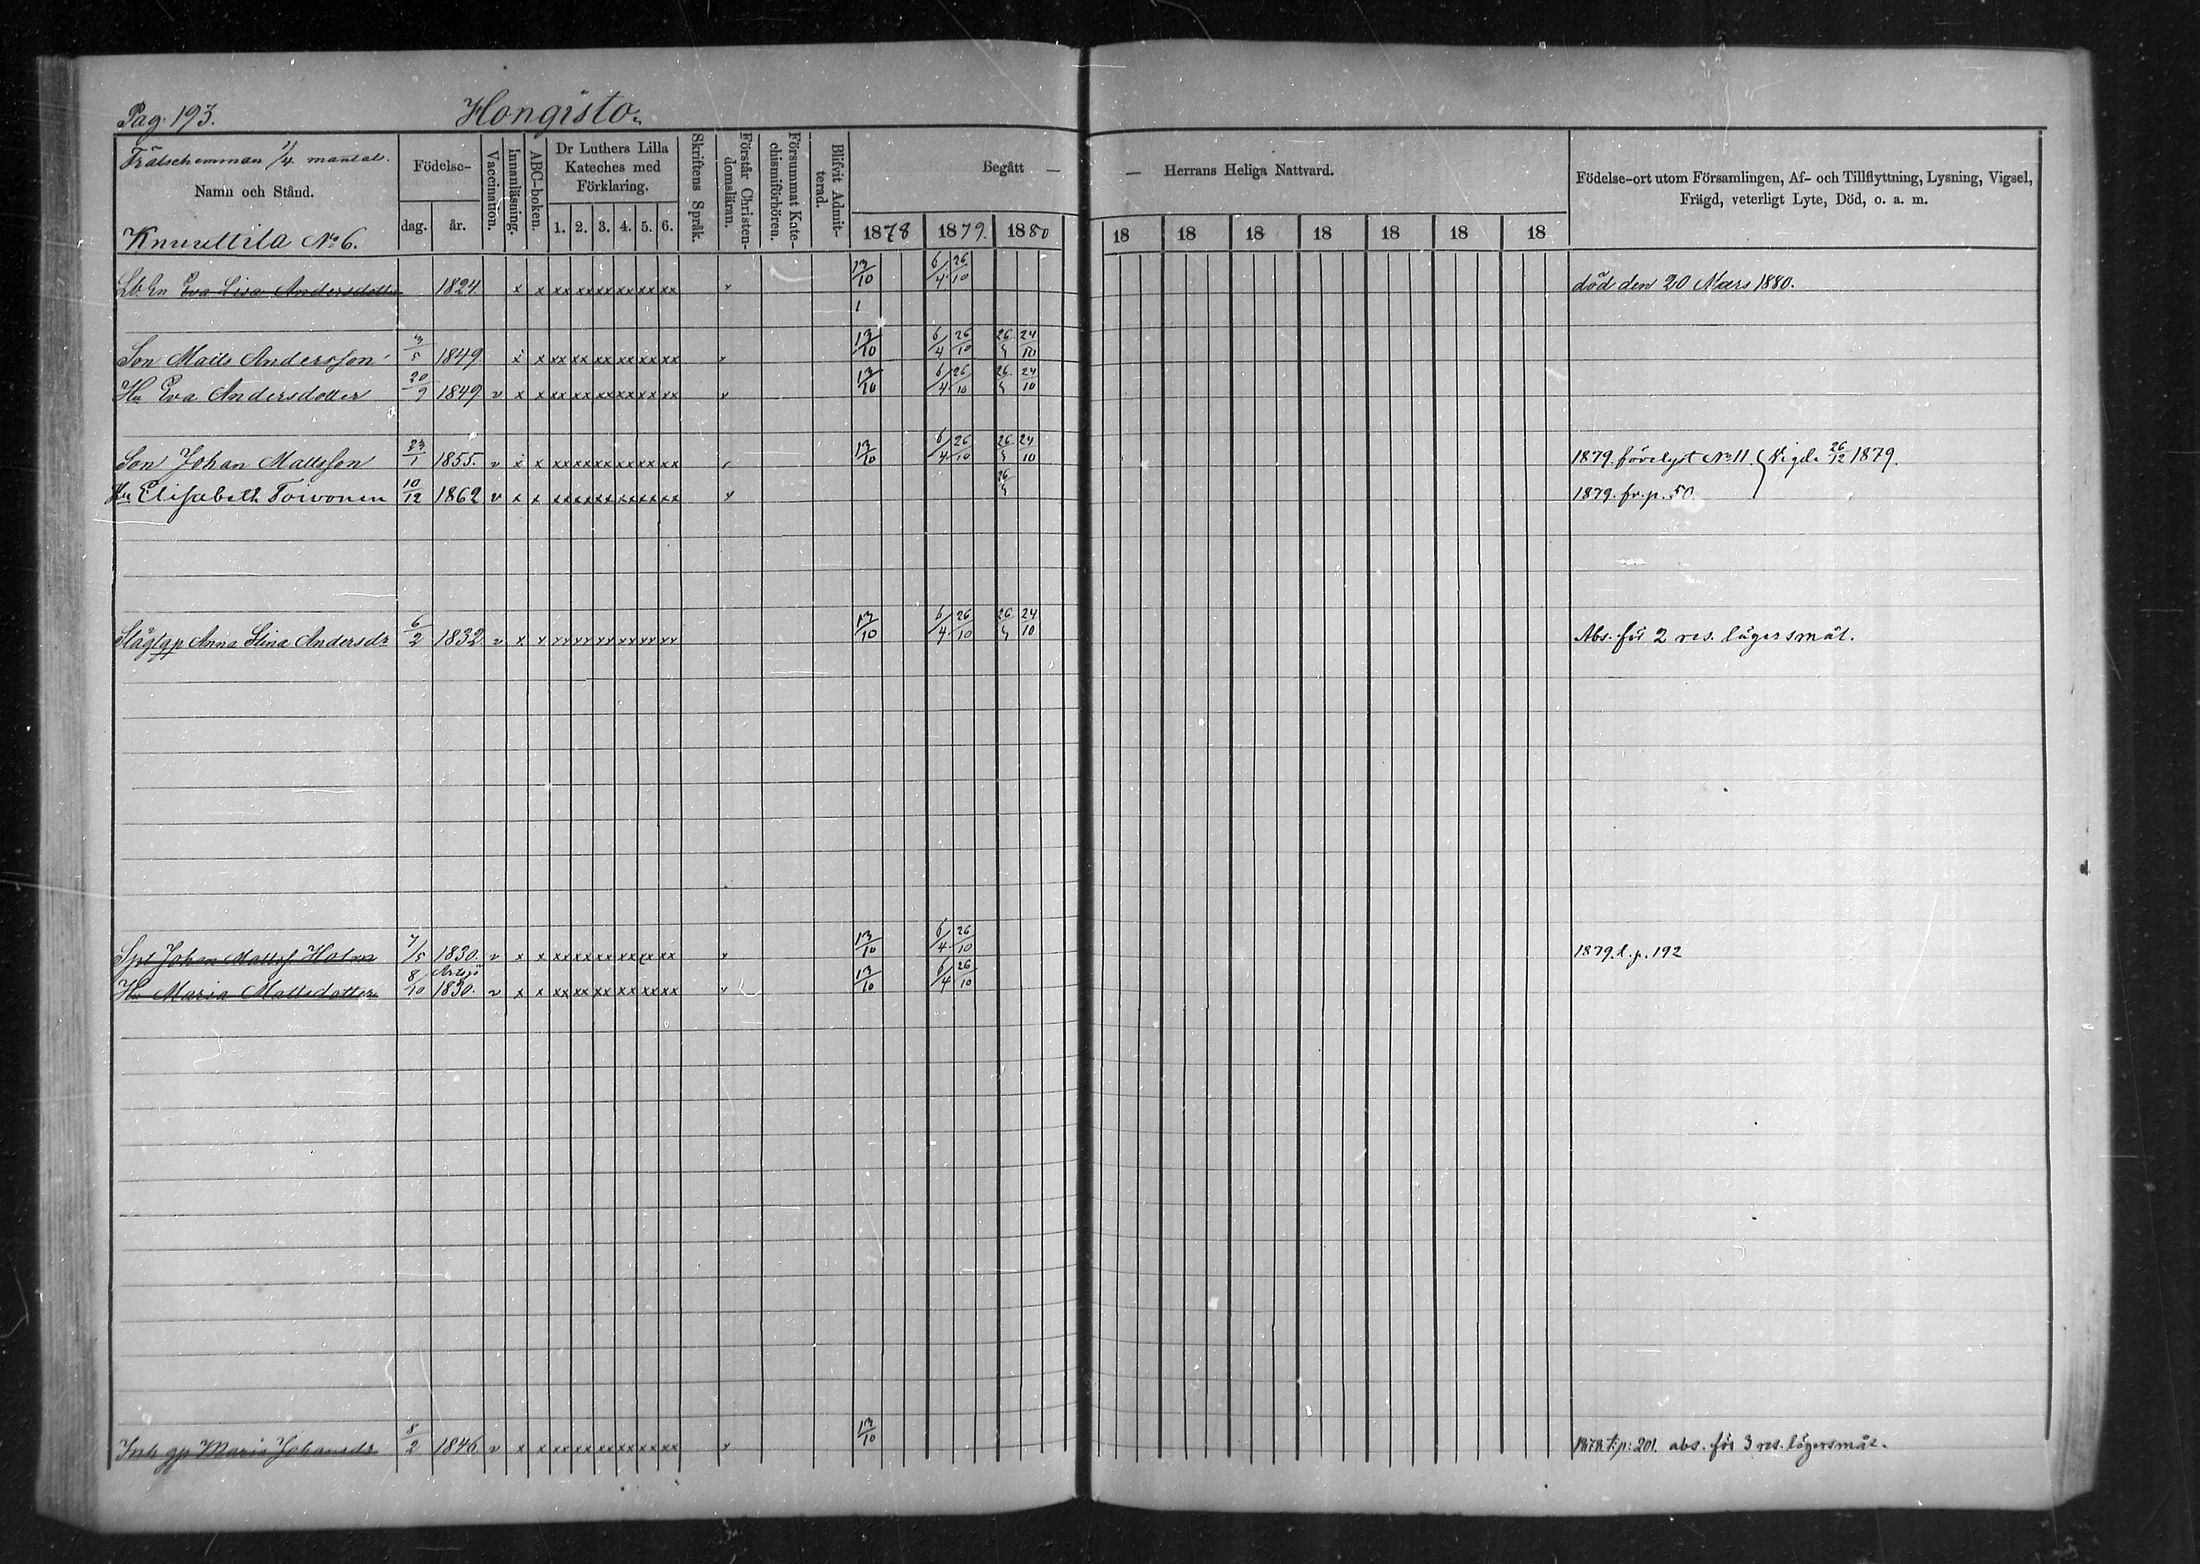 Pag. 193. Hongisto.
Frälsehemman 1/4 mantal.
Namn och Stånd.
Knuuttila No 6.
Födelse-
dag. år.
Vaccination.
Innanläsning.
ABC-boken.
Dr Luthers Lilla
Kateches med
Förklaring.
1. 2. 3. 4. 5. 6.
Skriftens Språk.
Förstår Christen-
domsläran.
Försummat Kate-
chismiförhören.
Blifvit Admit-
terad.
Begått — — Herrans Heliga Nattvard.
1878 1879. 1880 18 18 18 18 18 18 18
Födelse-ort utom Församlingen, Af- och Tillflyttning, Lysning, Vigsel,
Frägd, veterligt Lyte, Död, o. a. m.
Lb. En Eva Lisa Andersdotter 1824 x x xx xx xx xx xx xx v 13/10 6/4 26/10 död den 20 Mars 1880.
Son Matts Andersson 3/5 1849 x x xx xx xx xx xx xx v 13/10 6/4 26/10 26/5 24/10
Hu Eva Andersdotter 20/9 1849 v x x xx xx xx xx xx xx v 13/10 6/4 26/10 26/5 24/10
Son Johan Mattsson 23/1 1855. v x x xx xx xx xx xx xx 13/10 6/4 26/10 26/5 24/10 1879. förelyst No 11. Vigde 26/12 1879.
Hu Elisabeth Toivonen 10/12 1862 v x x xx xx xx xx xx xx v 26/5 1879. fr. p. 50.
Slägt gp Anna Stina Andersdr 6/2 1832. v x x xx xx xx xx xx xx 13/10 6/4 26/10 26/5 24/10 Abs. för 2 res. lägersmål.
Spt Johan Mattss Holm 7/5 1830. v x x xx xx xx xx xx xx v 13/10 6/4 26/10 1879. t. p. 192
Artsjö
Hu Maria Mattsdotter 8/10 1830. v x x xx xx xx xx xx xx v 13/10 6/4 26/10
Inh gp Maria Johansdr 8/2 1846 v x x xx xx xx xx xx xx v 13/10 1878 t. p. 201. abs. för 3 res. lägersmål.